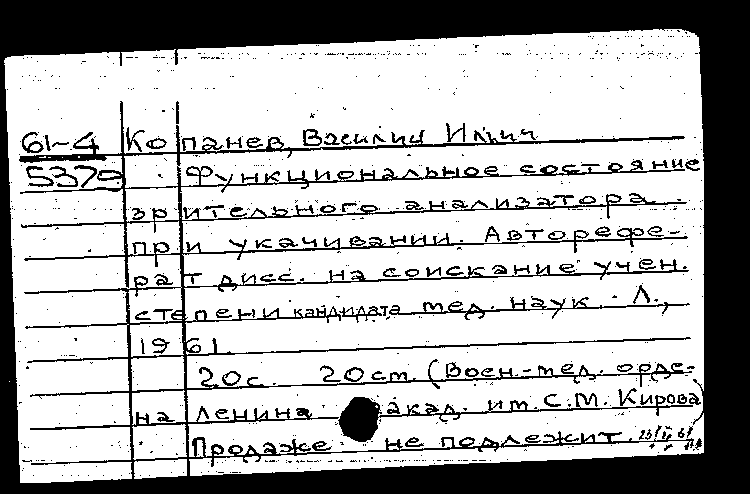 61-4 Копанев, Василий Ильич
5379 Функциональное состояние
зрительного анализатора
при укачивании. Авторефе-
рат дисс. на соискание учен.
степени кандидата мед. наук. Л.,
1961.
20с. 20см. (Воен.-мед. орде-
на Ленина акад. им. С.М. Кирова)
Продаже не подлежит.